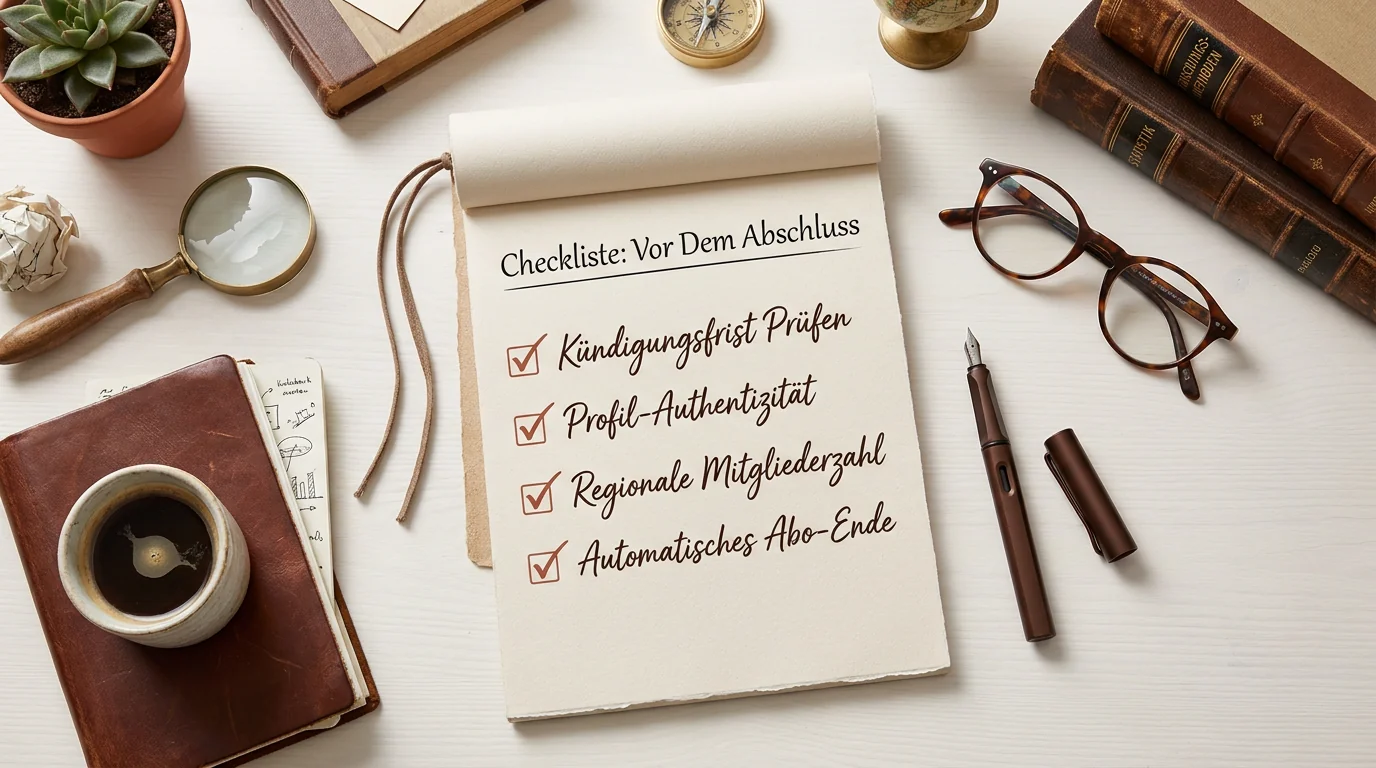 Checkliste: Vor Dem Abschluss
Kündigungsfrist Prüfen
Profil-Authentizität
Regionale Mitgliederzahl
Automatisches Abo-Ende